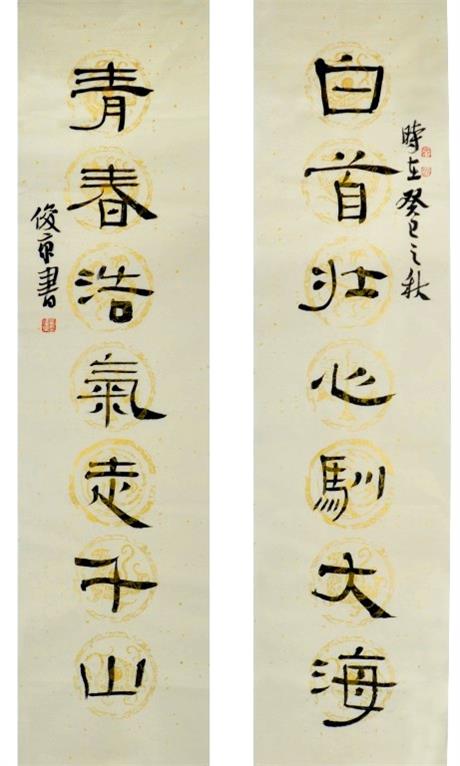 白首壯心馴大海
時在癸巳之秋
青春浩氣走千山
俊京書